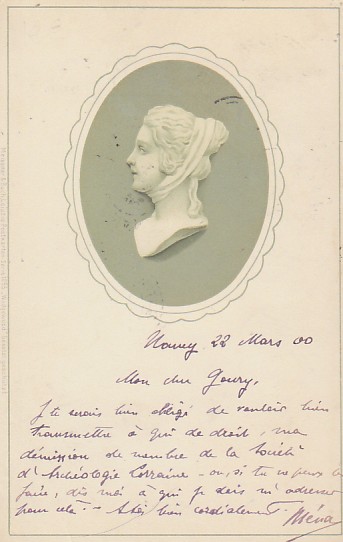 Nancy 22 Mars 00
Mon cher Goury,
Je te serais bien obligé de vouloir bien
transmettre à qui de droit, ma
démission de membre de la Société
d'Archéologie Lorraine - ou, si tu ne peux le
faire, dis moi à qui je dois m'adresser
pour cela. - bien cordialement.